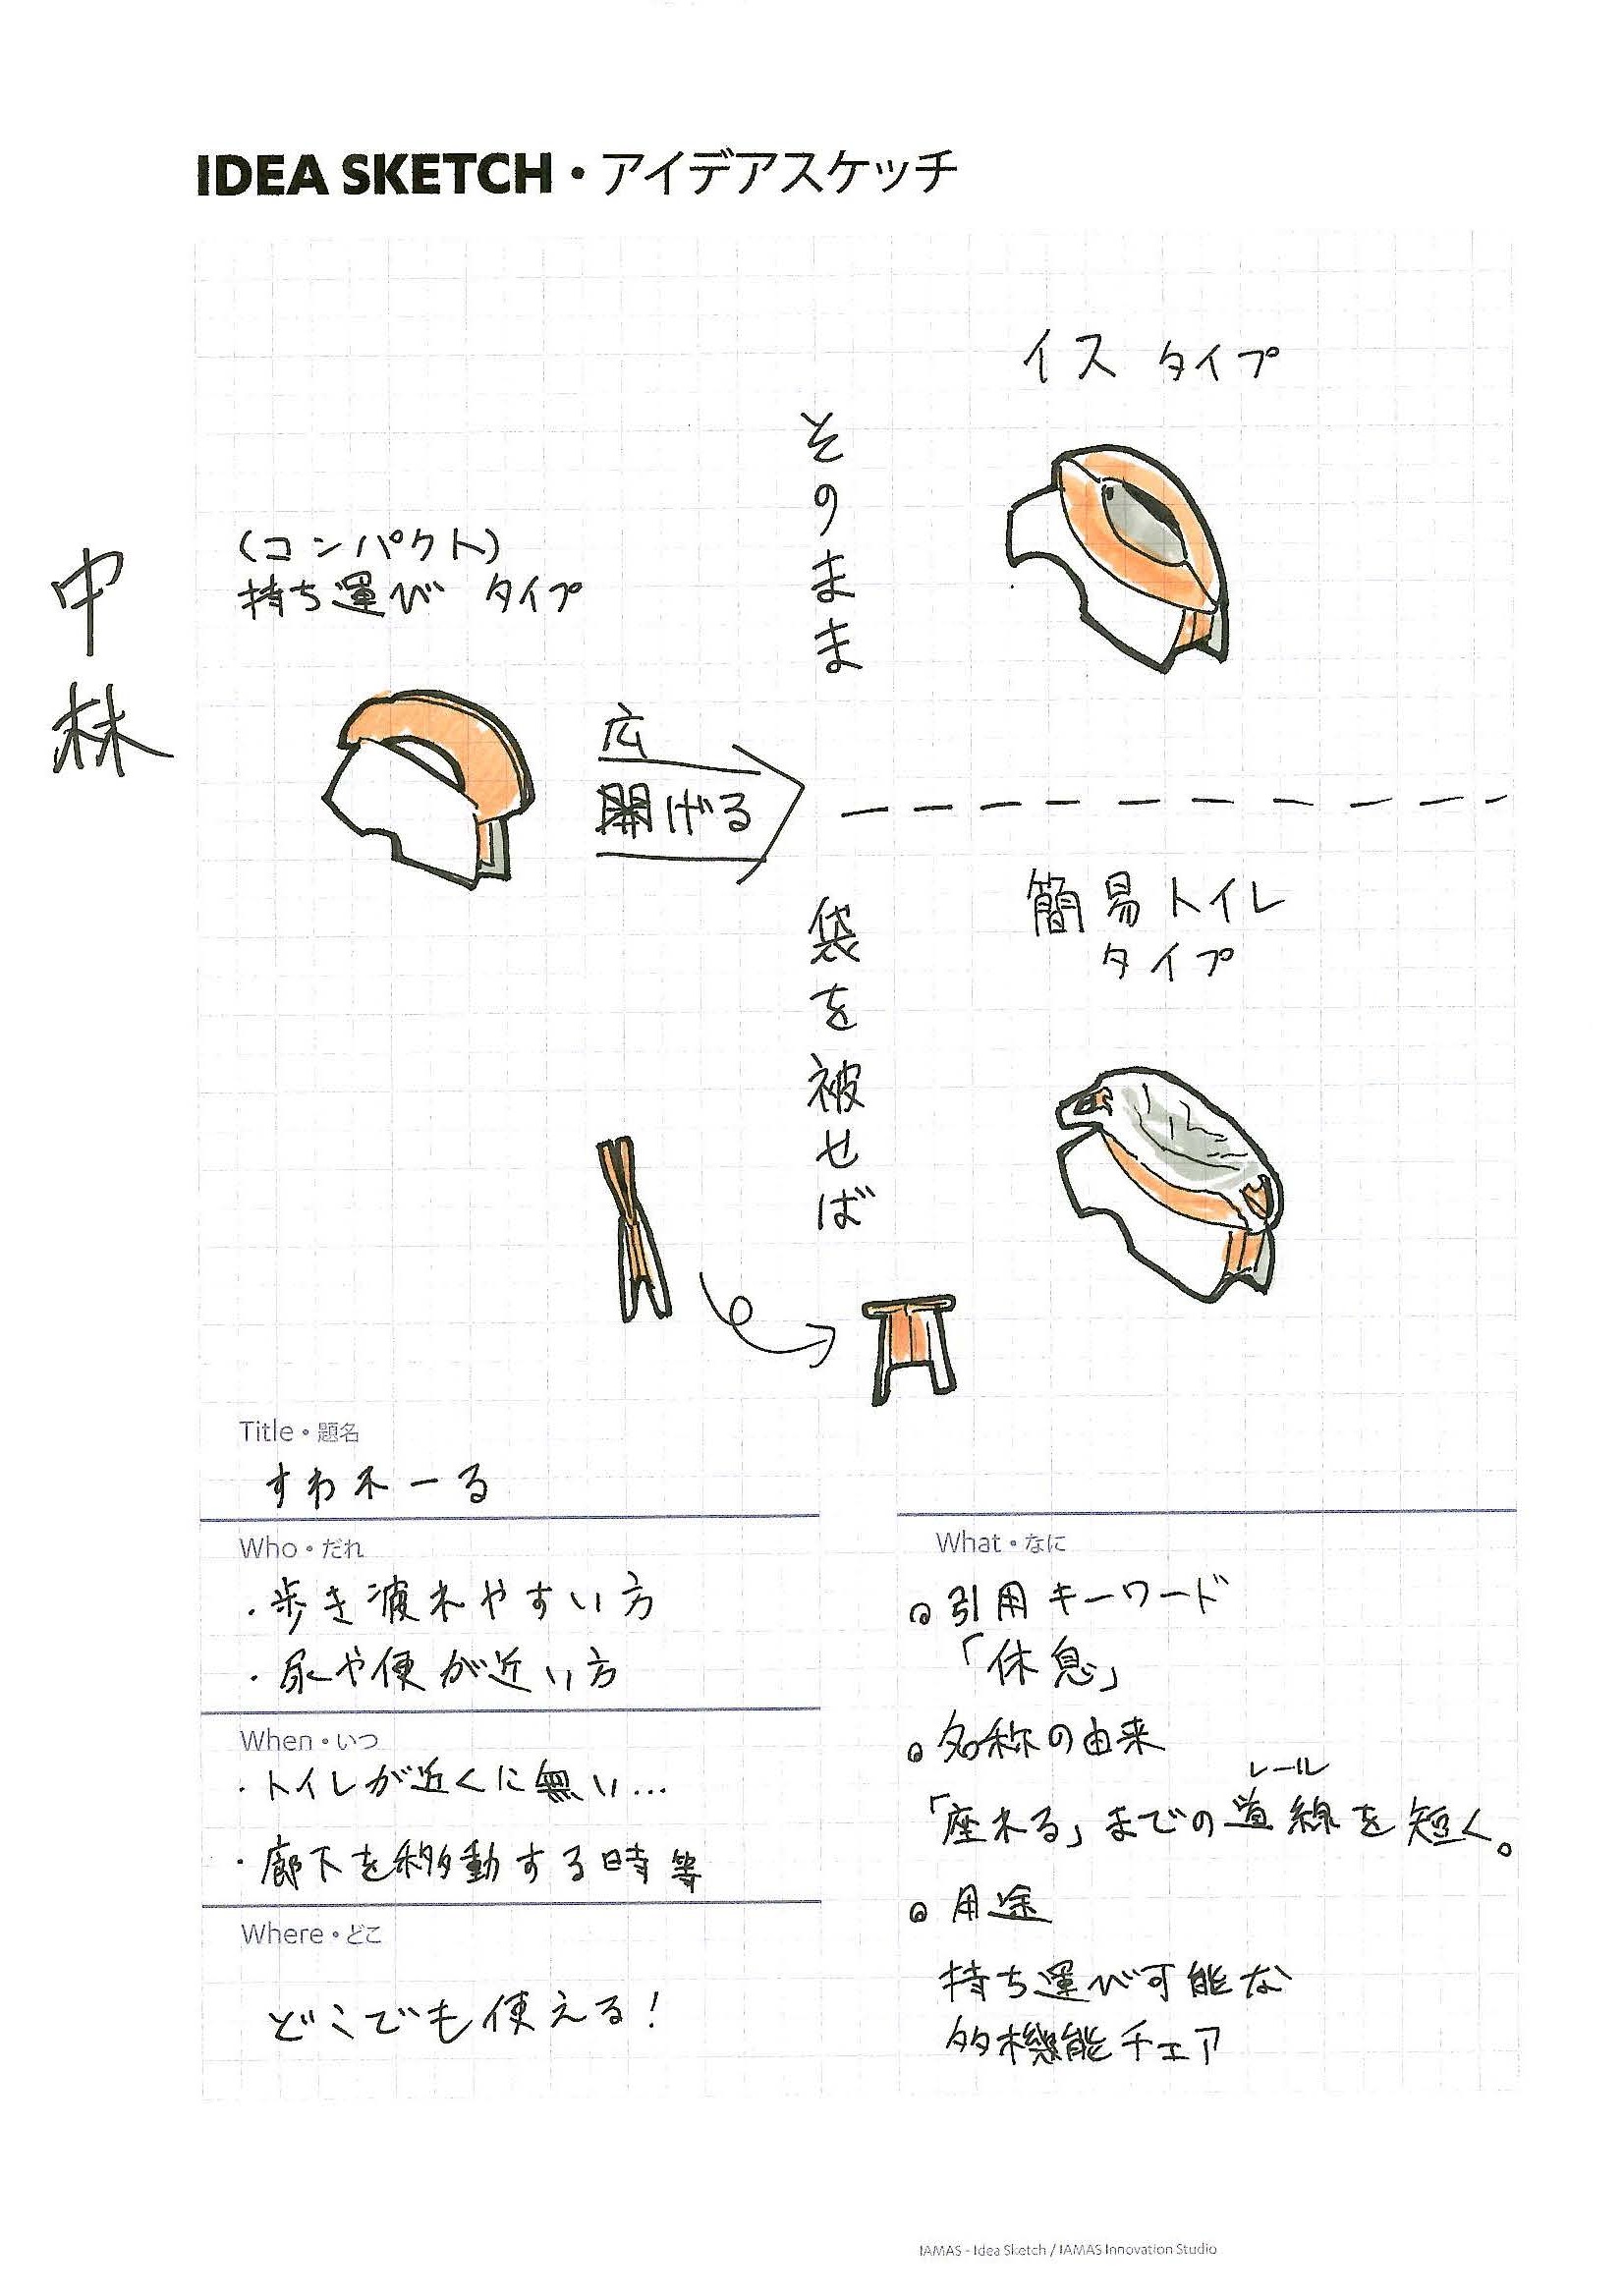 IDEA SKETCH・アイデアスケッチ
中林
(コンパクト)
持ち運び タイプ
広
開げる
そのまま
イス タイプ
袋を被せば
簡易トイレ
タイプ
Title・題名
すわれーる
Who・だれ
・歩き疲れやすい方
・尿や便が近い方
When・いつ
・トイレが近くに無い…
・廊下を移動する時等
Where・どこ
どこでも使える!
What・なに
引用キーワード
「休息」
名称の由来
レール
「座れる」までの導線を短く。
用途
持ち運び可能な
多機能チェア
IAMAS - Idea Sketch / IAMAS Innovation Studio